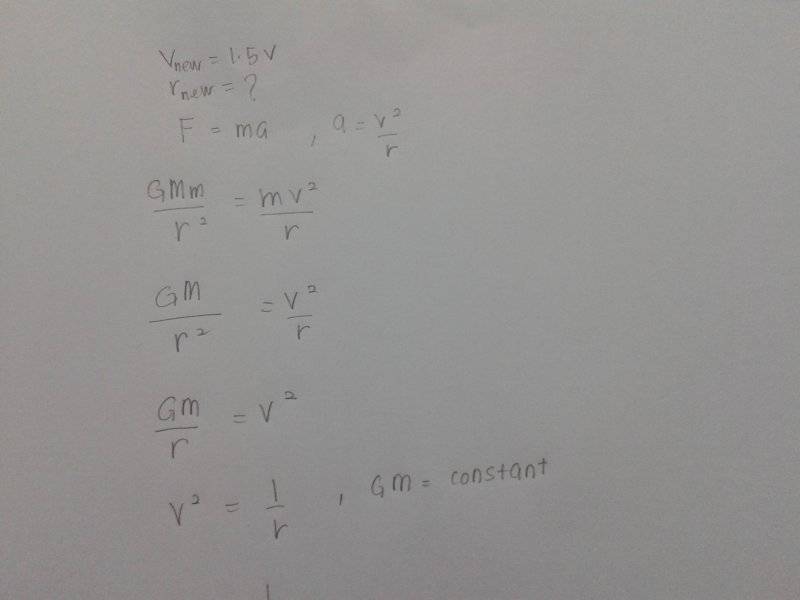 Vnew = 1.5V
rnew = ?
F = ma , a = v²/r
GMm/r² = mv²/r
GM/r² = v²/r
GM/r = v²
v² = 1/r , GM = constant